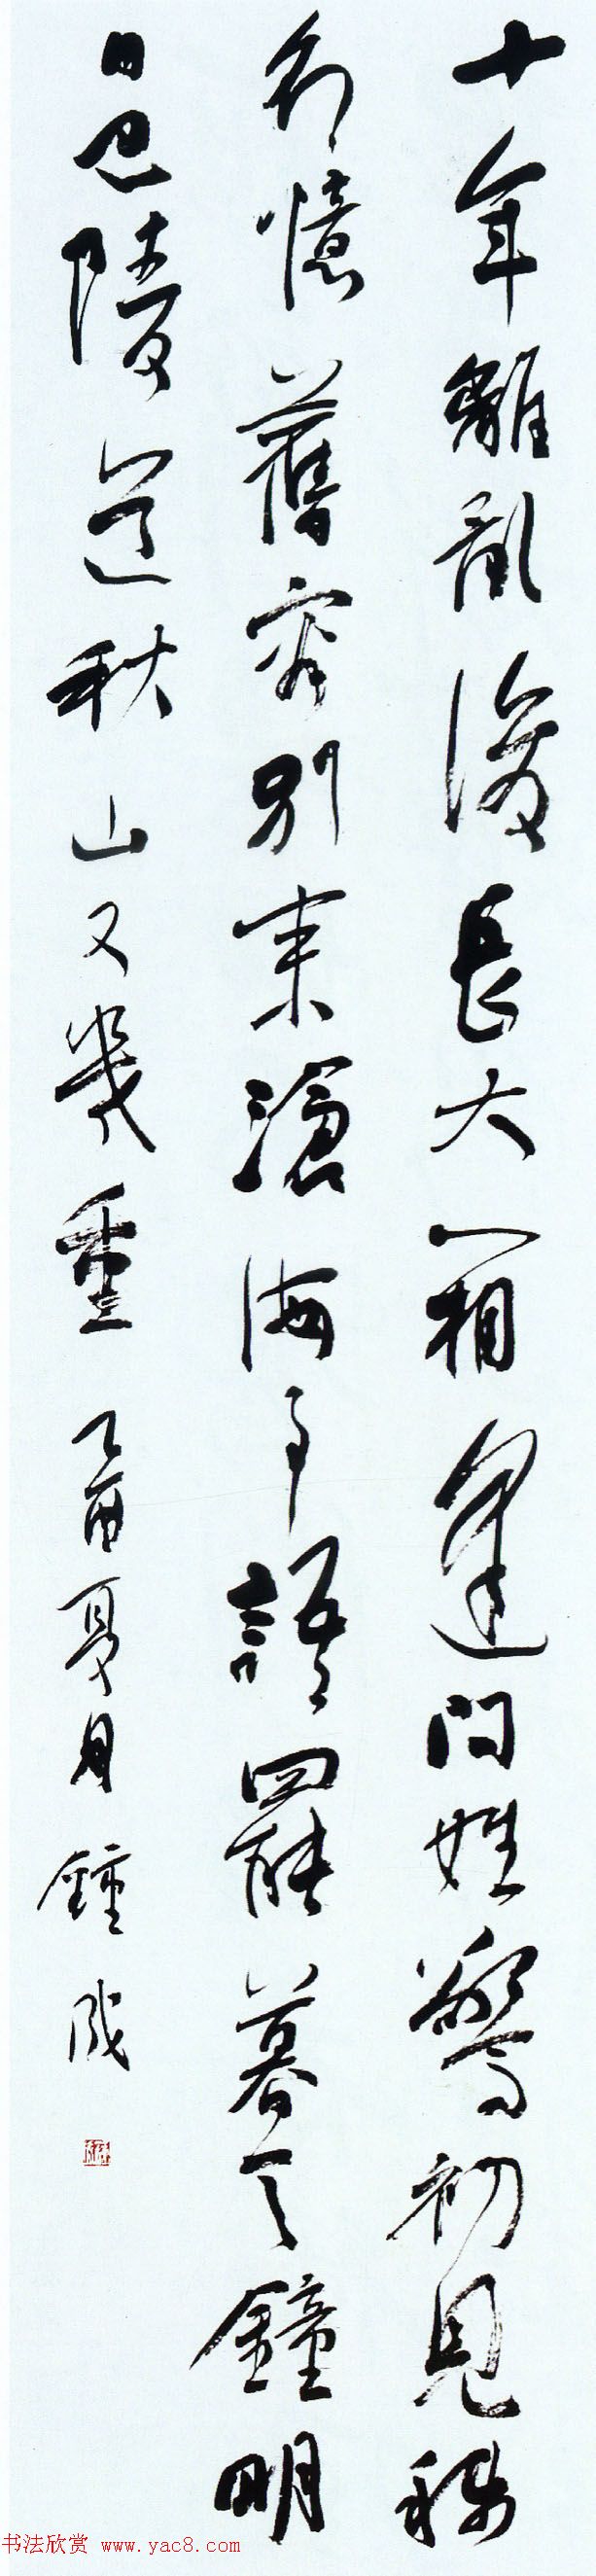 十年離亂後長大一相逢問姓驚初見稱
名憶舊容別來滄海事語罷暮天鐘明
日巴陵道秋山又幾重 乙酉夏月 鍾成
书法欣赏 www.yac8.com